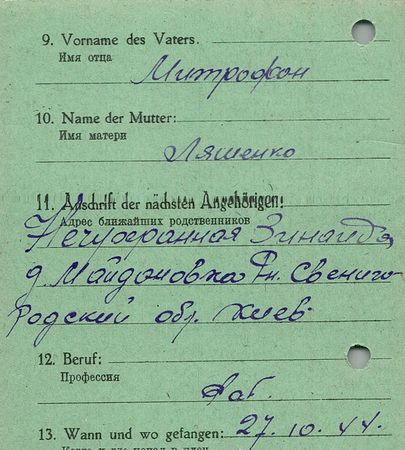 9. Vorname des Vaters.
Имя отца
Митрофон
10. Name der Mutter:
Имя матери
Ляшенко
11. Anschrift der nächsten Angehörigen:
Адрес ближайших родственников
Зинаида
д. Майдоновка Рн. Свениго
родский обл. Киев
12. Beruf:
Профессия
Раб.
13. Wann und wo gefangen: 27. 10. 44.
Когда и где попал в плен